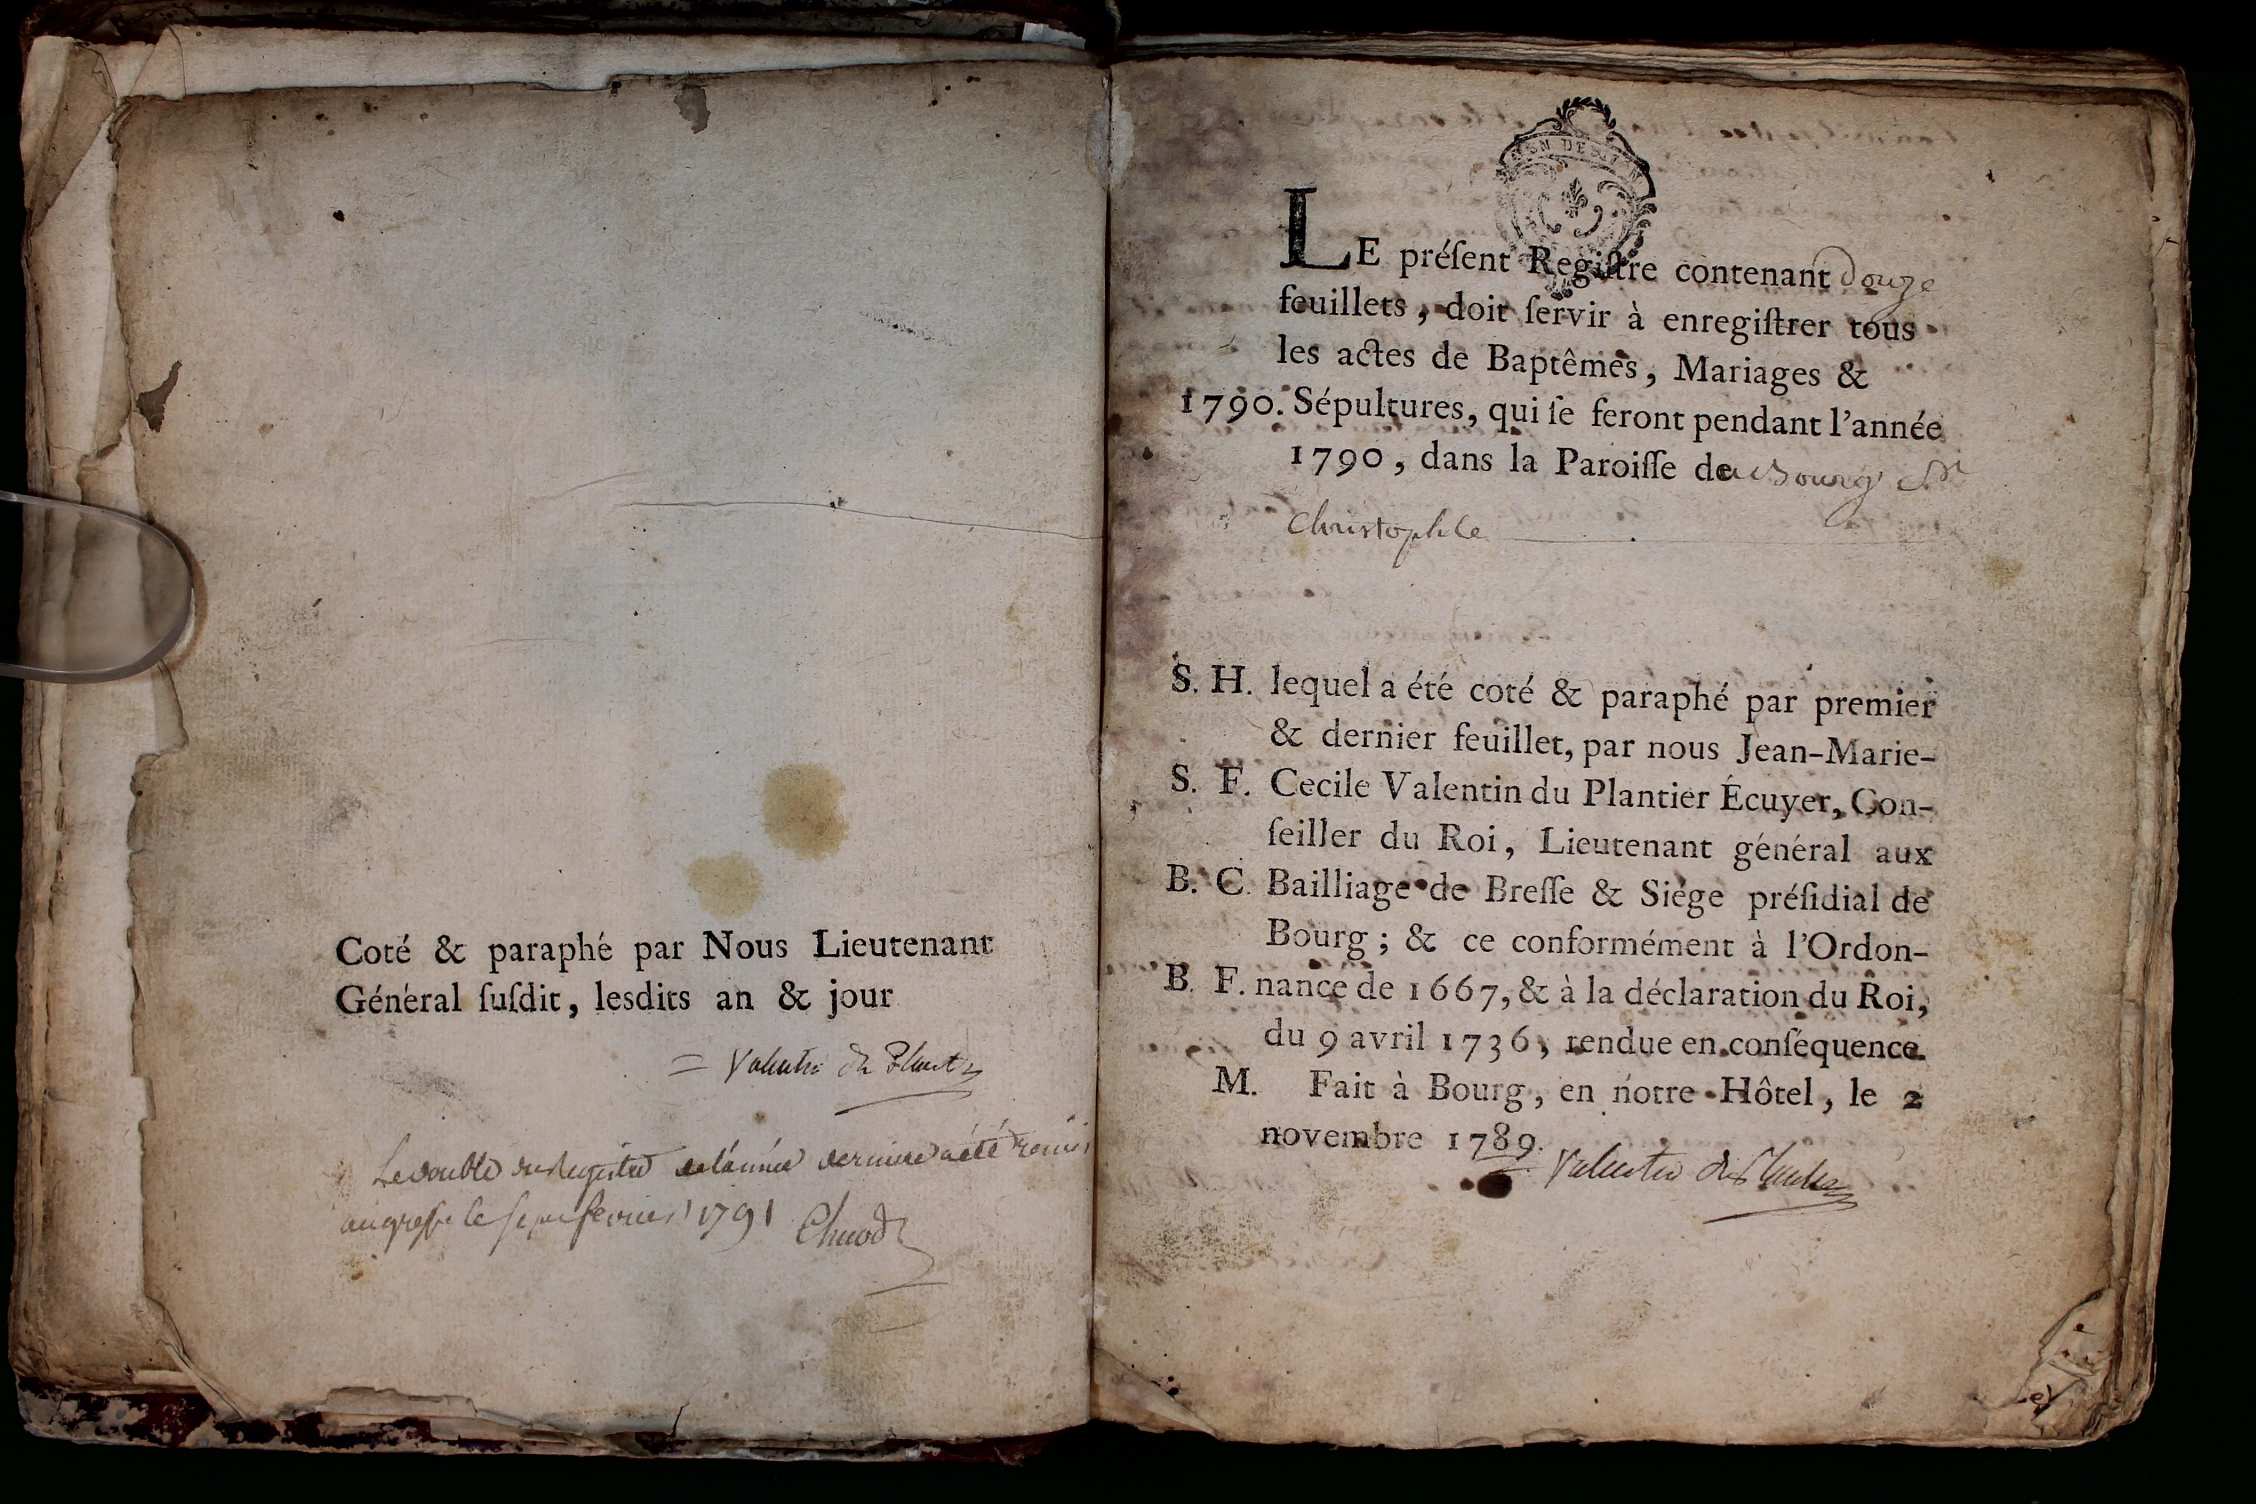 Coté & paraphé par Nous Lieutenant
Général ſuſdit, lesdits an & jour
Valentin du Plant
Le double du Registre de l'année derniere a été remis
au greffe le fevrier 1791
LE préſent Regiſtre contenant douze
feuillets, doit ſervir à enregiſtrer tous
les actes de Baptêmes, Mariages &
1790. Sépultures, qui ſe feront pendant l'année
1790, dans la Paroiſſe de Bourg St
Christophle
S. H. lequel a été coté & paraphé par premier
& dernier feuillet, par nous Jean-Marie-
S. F. Cecile Valentin du Plantier Écuyer, Con-
ſeiller du Roi, Lieutenant général aux
B. C. Bailliage de Breſſe & Siége préſidial de
Bourg; & ce conformément à l'Ordon-
B. F. nance de 1667, & à la déclaration du Roi,
du 9 avril 1736, rendue en conſéquence.
M. Fait à Bourg, en notre Hôtel, le 2
novembre 1789.
Valentin du Plantier